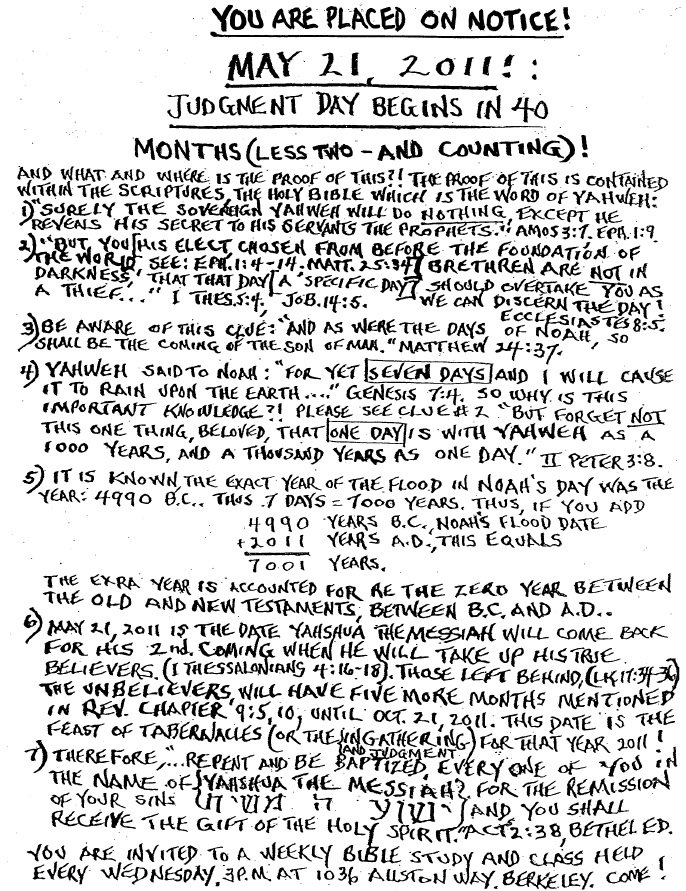 YOU ARE PLACED ON NOTICE!
MAY 21, 2011! :
JUDGMENT DAY BEGINS IN 40
MONTHS (LESS TWO - AND COUNTING)!
AND WHAT AND WHERE IS THE PROOF OF THIS?! THE PROOF OF THIS IS CONTAINED
WITHIN THE SCRIPTURES, THE HOLY BIBLE WHICH IS THE WORD OF YAHWEH:
1) "SURELY THE SOVEREIGN YAHWEH WILL DO NOTHING, EXCEPT HE
REVENS HIS SECRET TO HIS SERVANTS THE PROPHETS." AMOS 3:7. EPH. 1:9.
2) "BUT, YOU [HIS ELECT, CHOSEN FROM BEFORE THE FOUNDATION OF
THE WORLD, SEE: EPH. 1:4-14. MATT. 25:34] BRETHREN ARE NOT IN
DARKNESS, THAT THAT DAY [A "SPECIFIC DAY] SHOULD OVERTAKE YOU AS
A THIEF..." I THES. 5:4, JOB. 14:5. WE CAN DISCERN THE DAY!
ECCLESIASTES 8:5.
3) BE AWARE OF THIS CLUE: "AND AS WERE THE DAYS OF NOAH, SO
SHALL BE THE COMING OF THE SON OF MAN." MATTHEW 24:37.
4) YAHWEH SAID TO NOAH: "FOR YET SEVEN DAYS AND I WILL CAUSE
IT TO RAIN UPON THE EARTH...." GENESIS 7:4. SO WHY IS THIS
IMPORTANT KNOWLEDGE?! PLEASE SEE CLUE # 2 "BUT FORGET NOT
THIS ONE THING, BELOVED, THAT ONE DAY IS WITH YAHWEH AS A
1000 YEARS, AND A THOUSAND YEARS AS ONE DAY." II PETER 3:8.
5) IT IS KNOWN THE EXACT YEAR OF THE FLOOD IN NOAH'S DAY WAS THE
YEAR: 4990 B.C.. THUS 7 DAYS = 7000 YEARS. THUS, IF YOU ADD
4990 YEARS B.C., NOAH'S FLOOD DATE
+2011 YEARS A.D., THIS EQUALS
7001 YEARS.
THE EXRA YEAR IS ACCOUNTED FOR RE THE ZERO YEAR BETWEEN
THE OLD AND NEW TESTAMENTS, BETWEEN B.C. AND A.D..
6) MAY 21, 2011 IS THE DATE YAHSHUA THE MESSIAH WILL COME BACK
FOR HIS 2nd. COMING WHEN HE WILL TAKE UP HIS TRUE
BELIEVERS. (I THESSALONIANS 4:16-18). THOSE LEFT BEHIND, (LK. 17:34-36)
THE UNBELIEVERS, WILL HAVE FIVE MORE MONTHS MENTIONED
IN REV. CHAPTER 9:5, 10, UNTIL OCT. 21, 2011. THIS DATE IS THE
FEAST OF TABERNACLES (OR THE INGATHERING) FOR THAT YEAR 2011!
AND JUDGMENT
7) THEREFORE, "...REPENT AND BE BAPTIZED, EVERY ONE OF YOU IN
THE NAME OF YAHSHUA THE MESSIAH? FOR THE REMISSION
OF YOUR SINS AND YOU SHALL
RECEIVE THE GIFT OF THE HOLY SPIRIT." ACTS 2:38, BETHEL ED.
YOU ARE INVITED TO A WEEKLY BIBLE STUDY AND CLASS HELD
EVERY WEDNESDAY, 3P.M. AT 1036 ALLSTON WAY, BERKELEY. COME!